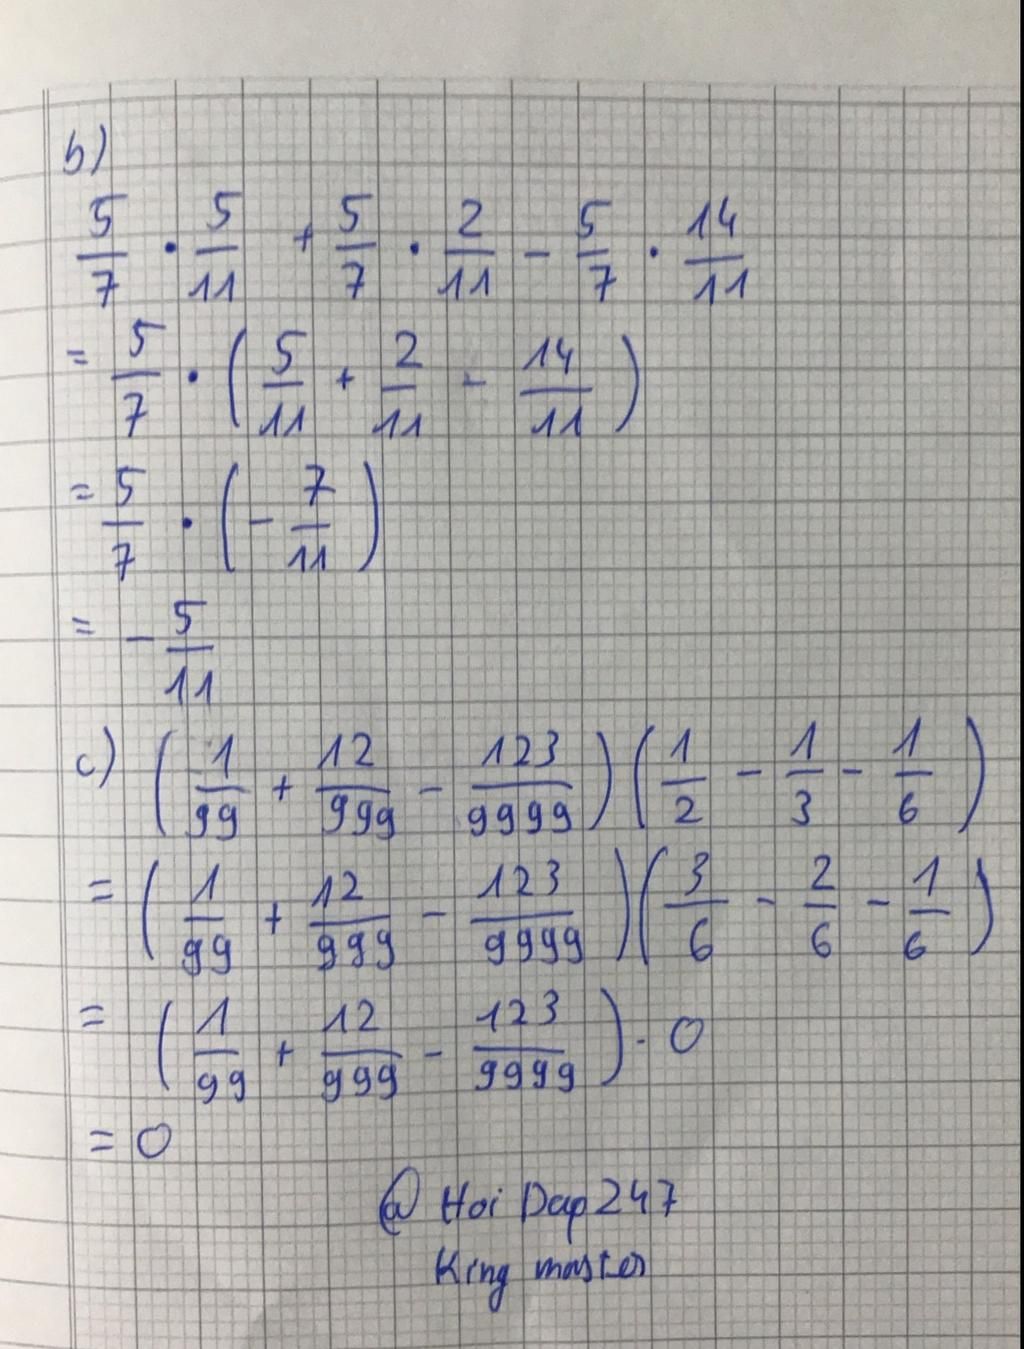 b)
5/7 · 5/11 + 5/7 · 2/11 - 5/7 · 14/11
= 5/7 · (5/11 + 2/11 - 14/11)
= 5/7 · (- 7/11)
= - 5/11
c) (1/99 + 12/999 - 123/9999)(1/2 - 1/3 - 1/6)
= (1/99 + 12/999 - 123/9999)(3/6 - 2/6 - 1/6)
= (1/99 + 12/999 - 123/9999) · 0
= 0
@ Hoi Dap 247
King master